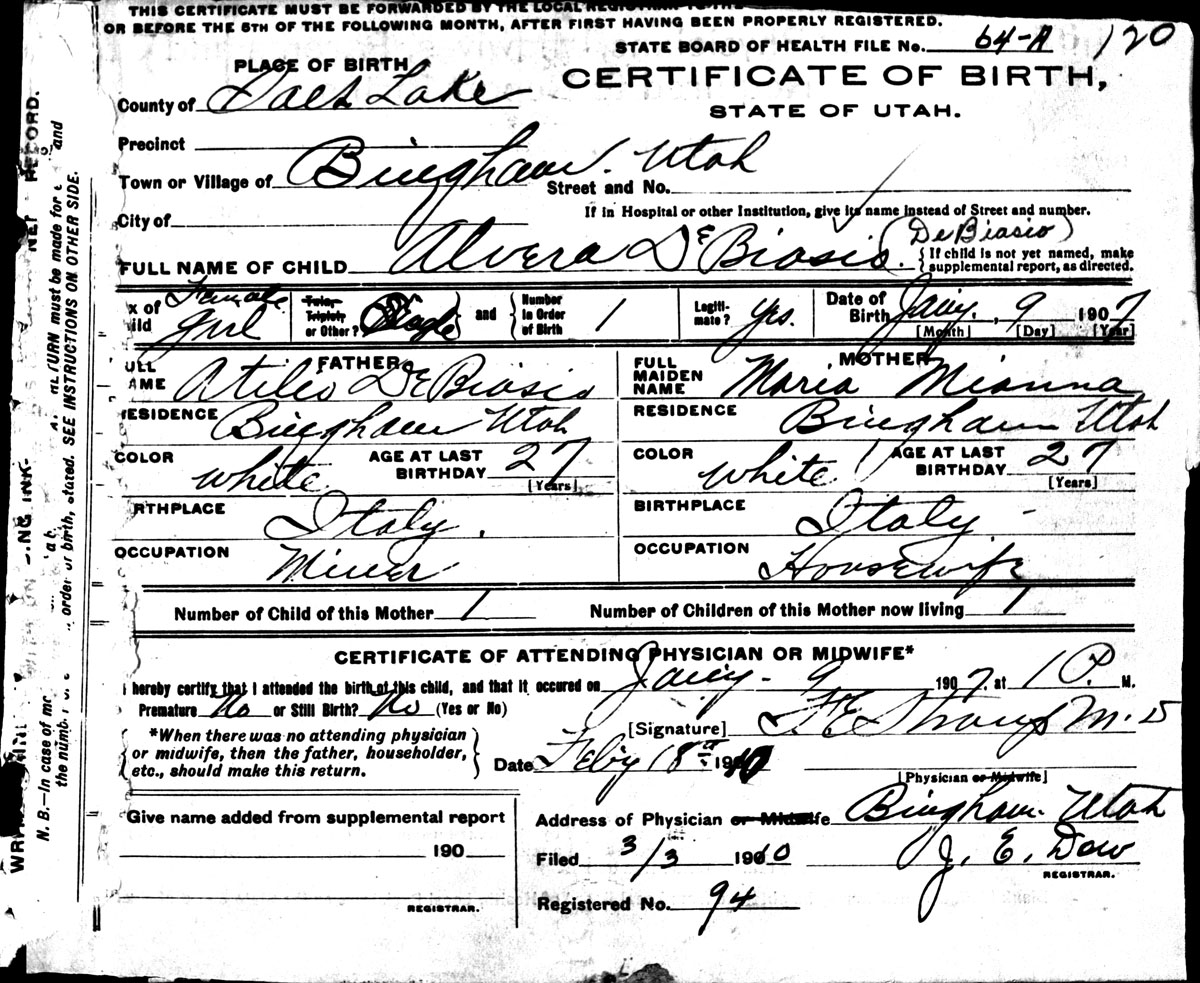 THIS CERTIFICATE MUST BE FORWARDED BY THE LOCAL REGISTRAR TO THE
OR BEFORE THE 5TH OF THE FOLLOWING MONTH, AFTER FIRST HAVING BEEN PROPERLY REGISTERED.
STATE BOARD OF HEALTH FILE No. 64-A 120
PLACE OF BIRTH
CERTIFICATE OF BIRTH,
County of Salt Lake
STATE OF UTAH.
Precinct
Town or Village of Bingham. Utah Street and No.
City of If in Hospital or other Institution, give its name instead of Street and number.
FULL NAME OF CHILD Alvera DeBiasis. (DeBiasio) {If child is not yet named, make supplemental report, as directed.
x of ild Female girl Twin, Triplet, or Other? Single and Number in Order of Birth 1 Legitimate? Yes. Date of Birth Jany. 9 1907
[Month] [Day] [Year]
FATHER MOTHER
ULL AME Atilio DeBiasis FULL MAIDEN NAME Maria Mianna
RESIDENCE Bingham Utah RESIDENCE Bingham Utah
COLOR white AGE AT LAST BIRTHDAY 27 [Years] COLOR white AGE AT LAST BIRTHDAY 27 [Years]
RTHPLACE Italy. BIRTHPLACE Italy
OCCUPATION Miner OCCUPATION Housewife
Number of Child of this Mother 1 Number of Children of this Mother now living 1
CERTIFICATE OF ATTENDING PHYSICIAN OR MIDWIFE*
I hereby certify that I attended the birth of this child, and that it occured on Jany. 9 1907, at 1 P. M.
Premature No or Still Birth? No (Yes or No)
[Signature] F.E. Straup M.D
*When there was no attending physician
or midwife, then the father, householder,
etc., should make this return.
Date Feby 18th 1910
[Physician or Midwife]
Give name added from supplemental report
190
REGISTRAR.
Address of Physician or Midwife Bingham. Utah
Filed 3/3 1910 J. E. Dow
REGISTRAR.
Registered No. 94
order of birth, stated. SEE INSTRUCTIONS ON OTHER SIDE.
N. B.—In case of